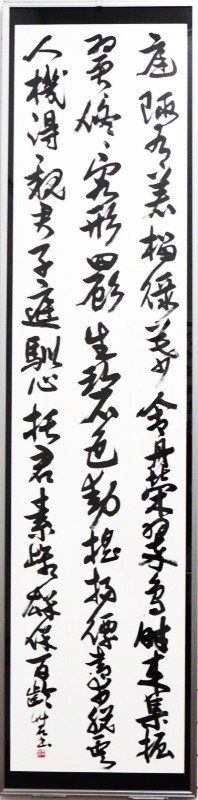 庭陬有若榴綠葉含丹榮翠鳥時來集振
翼修容形回顧生碧色動搖揚縹青幸脱虞
人機得親君子庭馴心托君素雌雄保百齡